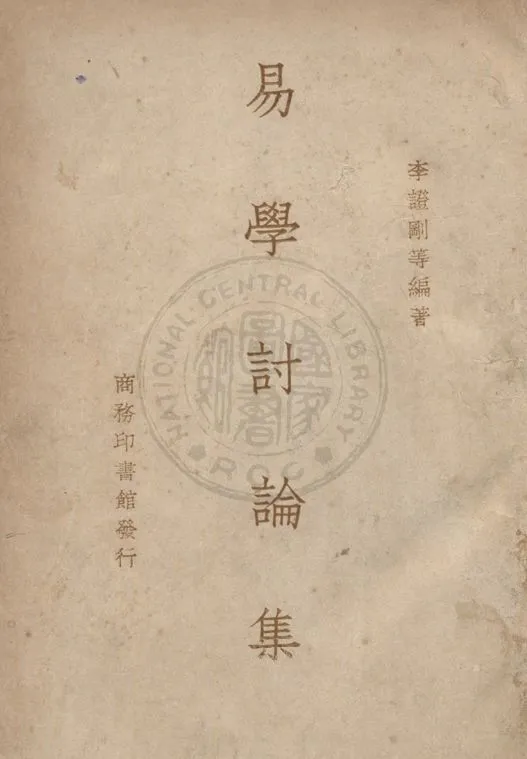 李證剛等編著
易學討論集
商務印書館發行
NATIONAL CENTRAL LIBRARY
ROC
國家圖書館